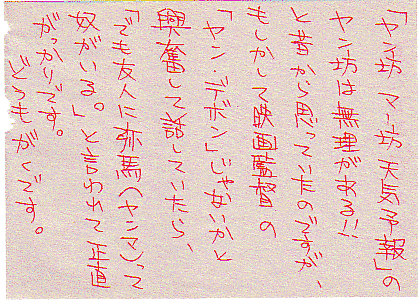 「ヤン坊 マー坊 天気予報」の
ヤン坊は無理がある!!
と昔から思っていたのですが、
もしかして映画監督の
「ヤン・デボン」じゃないかと
興奮して話していたら、
「でも友人に弥馬(ヤンマ)って
奴がいる。」と言われて正直
がっかりです。
どうもがくです。